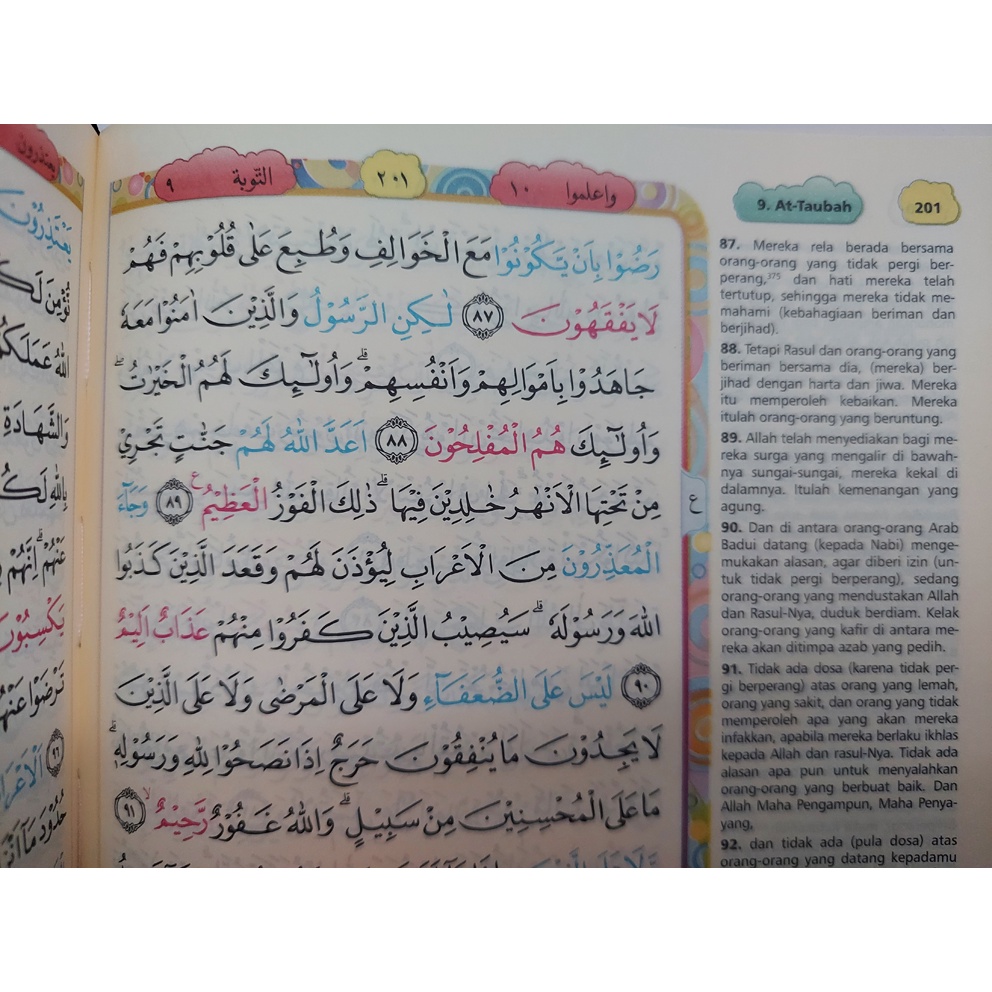 التّوبة ٩
٢٠١
واعلموا ١٠
رَضُوْا بِاَنْ يَّكُوْنُوْا مَعَ الْخَوَالِفِ وَطُبِعَ عَلٰى قُلُوْبِهِمْ فَهُمْ
لَا يَفْقَهُوْنَ ٨٧ لٰكِنِ الرَّسُوْلُ وَالَّذِيْنَ اٰمَنُوْا مَعَهٗ
جَاهَدُوْا بِاَمْوَالِهِمْ وَاَنْفُسِهِمْۗ وَاُولٰۤىِٕكَ لَهُمُ الْخَيْرٰتُۖ
وَاُولٰۤىِٕكَ هُمُ الْمُفْلِحُوْنَ ٨٨ اَعَدَّ اللّٰهُ لَهُمْ جَنّٰتٍ تَجْرِيْ
مِنْ تَحْتِهَا الْاَنْهٰرُ خٰلِدِيْنَ فِيْهَاۗ ذٰلِكَ الْفَوْزُ الْعَظِيْمُ ࣖ ٨٩ وَجَاۤءَ
الْمُعَذِّرُوْنَ مِنَ الْاَعْرَابِ لِيُؤْذَنَ لَهُمْ وَقَعَدَ الَّذِيْنَ كَذَبُوا
اللّٰهَ وَرَسُوْلَهٗۗ سَيُصِيْبُ الَّذِيْنَ كَفَرُوْا مِنْهُمْ عَذَابٌ اَلِيْمٌ
٩٠ لَيْسَ عَلَى الضُّعَفَاۤءِ وَلَا عَلَى الْمَرْضٰى وَلَا عَلَى الَّذِيْنَ
لَا يَجِدُوْنَ مَا يُنْفِقُوْنَ حَرَجٌ اِذَا نَصَحُوْا لِلّٰهِ وَرَسُوْلِهٖۗ
مَا عَلَى الْمُحْسِنِيْنَ مِنْ سَبِيْلٍۗ وَاللّٰهُ غَفُوْرٌ رَّحِيْمٌۙ ٩١
ع
9. At-Taubah
201
87. Mereka rela berada bersama
orang-orang yang tidak pergi ber-
perang,³⁷⁵ dan hati mereka telah
tertutup, sehingga mereka tidak me-
mahami (kebahagiaan beriman dan
berjihad).
88. Tetapi Rasul dan orang-orang yang
beriman bersama dia, (mereka) ber-
jihad dengan harta dan jiwa. Mereka
itu memperoleh kebaikan. Mereka
itulah orang-orang yang beruntung.
89. Allah telah menyediakan bagi me-
reka surga yang mengalir di bawah-
nya sungai-sungai, mereka kekal di
dalamnya. Itulah kemenangan yang
agung.
90. Dan di antara orang-orang Arab
Badui datang (kepada Nabi) menge-
mukakan alasan, agar diberi izin (un-
tuk tidak pergi berperang), sedang
orang-orang yang mendustakan Allah
dan Rasul-Nya, duduk berdiam. Kelak
orang-orang yang kafir di antara me-
reka akan ditimpa azab yang pedih.
91. Tidak ada dosa (karena tidak per-
gi berperang) atas orang yang lemah,
orang yang sakit, dan orang yang tidak
memperoleh apa yang akan mereka
infakkan, apabila mereka berlaku ikhlas
kepada Allah dan rasul-Nya. Tidak ada
alasan apa pun untuk menyalahkan
orang-orang yang berbuat baik. Dan
Allah Maha Pengampun, Maha Penya-
yang,
92. dan tidak ada (pula dosa) atas
orang-orang yang datang kepadamu